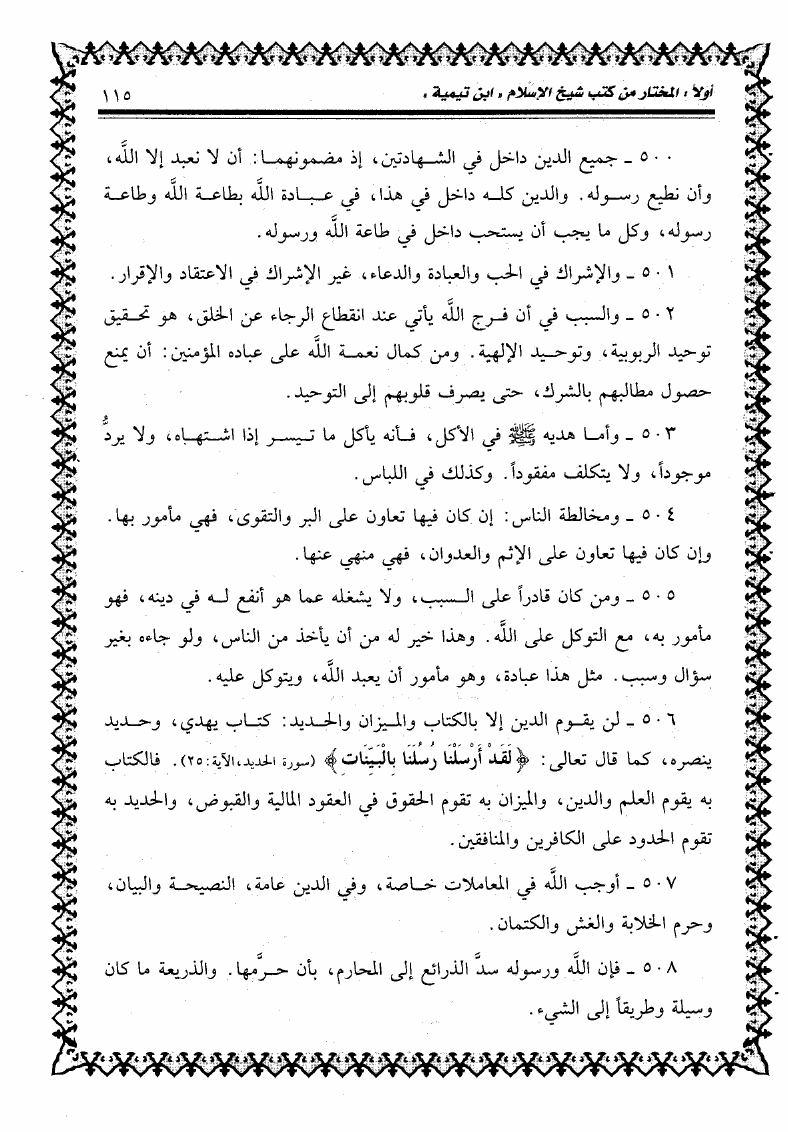 أولاً : المختار من كتب شيخ الإسلام « ابن تيمية » ١١٥
٥٠٠ ـ جميع الدين داخل في الشهادتين، إذ مضمونهما: أن لا نعبد إلا اللَّه،
وأن نطيع رسوله. والدين كله داخل في هذا، في عبادة اللَّه بطاعة اللَّه وطاعة
رسوله، وكل ما يجب أن يستحب داخل في طاعة اللَّه ورسوله.
٥٠١ ـ والإشراك في الحب والعبادة والدعاء، غير الإشراك في الاعتقاد والإقرار.
٥٠٢ ـ والسبب في أن فرج اللَّه يأتي عند انقطاع الرجاء عن الخلق، هو تحقيق
توحيد الربوبية، وتوحيد الإلهية. ومن كمال نعمة اللَّه على عباده المؤمنين: أن يمنع
حصول مطالبهم بالشرك، حتى يصرف قلوبهم إلى التوحيد.
٥٠٣ ـ وأما هديه ﷺ في الأكل، فأنه يأكل ما تيسر إذا اشتهاه، ولا يردُّ
موجوداً، ولا يتكلف مفقوداً. وكذلك في اللباس.
٥٠٤ ـ ومخالطة الناس: إن كان فيها تعاون على البر والتقوى، فهي مأمور بها.
وإن كان فيها تعاون على الإثم والعدوان، فهي منهي عنها.
٥٠٥ ـ ومن كان قادراً على السبب، ولا يشغله عما هو أنفع له في دينه، فهو
مأمور به، مع التوكل على اللَّه. وهذا خير له من أن يأخذ من الناس، ولو جاءه بغير
سؤال وسبب. مثل هذا عبادة، وهو مأمور أن يعبد اللَّه، ويتوكل عليه.
٥٠٦ ـ لن يقوم الدين إلا بالكتاب والميزان والحديد: كتاب يهدي، وحديد
ينصره، كما قال تعالى: ﴿ لَقَدْ أَرْسَلْنَا رُسُلَنَا بِالْبَيِّنَاتِ ﴾ (سورة الحديد،الآية:٢٥). فالكتاب
به يقوم العلم والدين، والميزان به تقوم الحقوق في العقود المالية والقبوض، والحديد به
تقوم الحدود على الكافرين والمنافقين.
٥٠٧ ـ أوجب اللَّه في المعاملات خاصة، وفي الدين عامة، النصيحة والبيان،
وحرم الخلابة والغش والكتمان.
٥٠٨ ـ فإن اللَّه ورسوله سدَّ الذرائع إلى المحارم، بأن حرَّمها. والذريعة ما كان
وسيلة وطريقاً إلى الشيء.